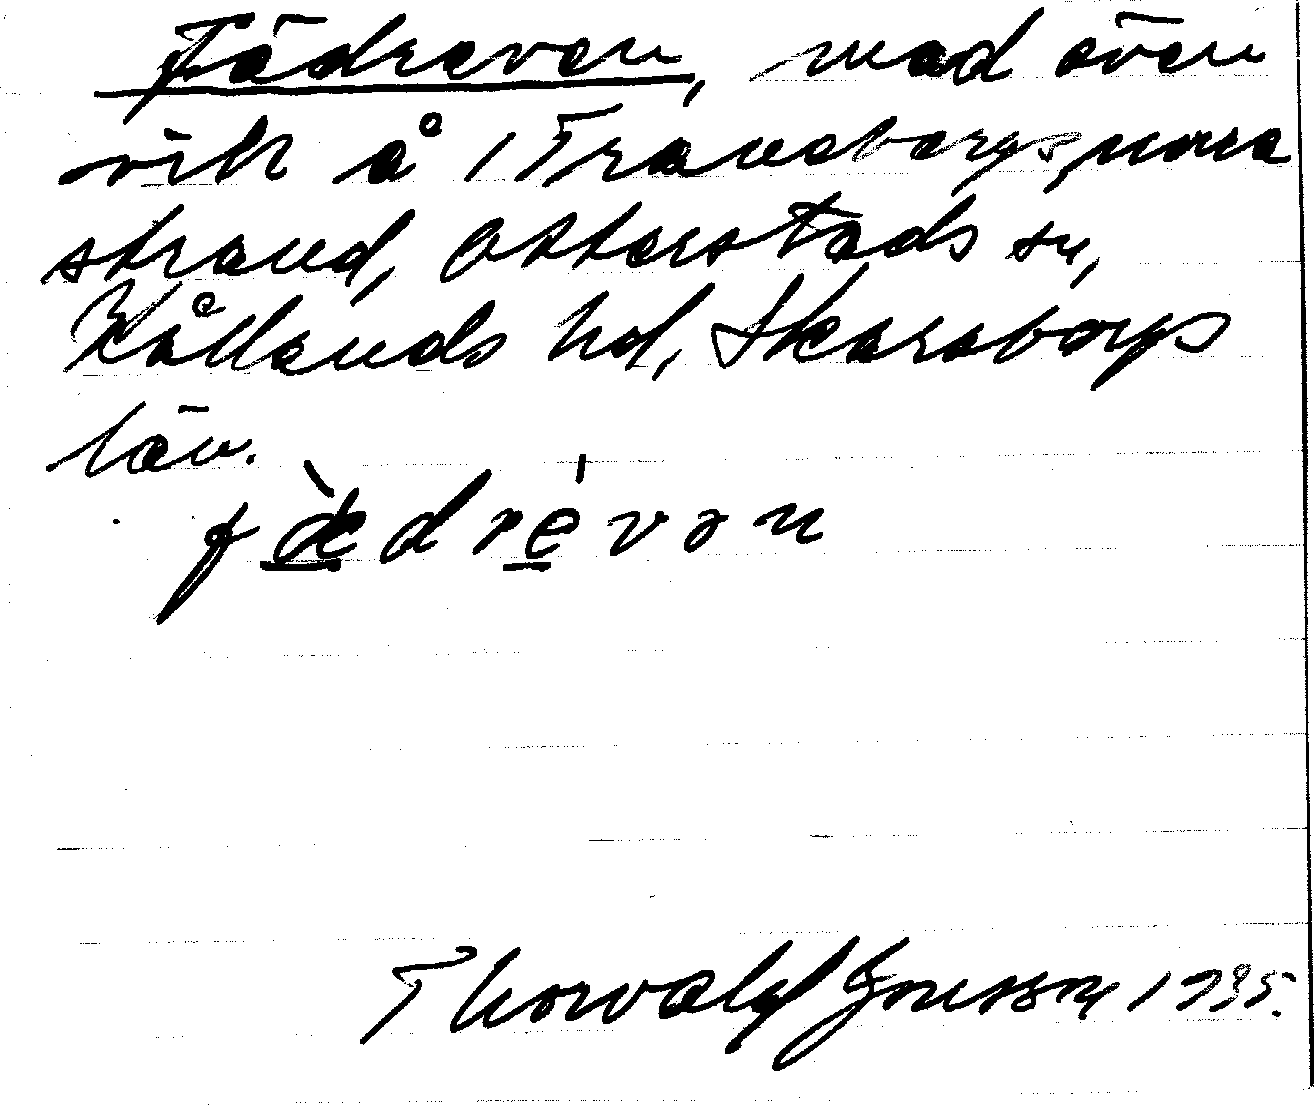 Fädreven, mad även
vik å / Traneberg, norra
strand, Otterstads sn,
Kållands hd, Skaraborgs
län.
f æ̀ d r é v ə n
Thorvald Jonsson 1935.